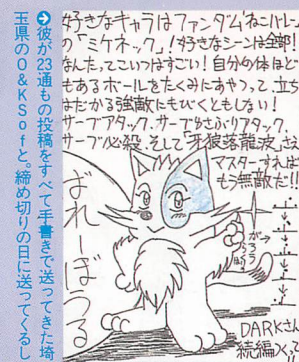 ➲彼が23通もの投稿をすべて手書きで送ってきた埼
玉県のO&KSofと。締め切りの日に送ってくるし
好きなキャラはファンダム「ねこバレー」
の「ミケネック」!好きなシーンは全部!
なんたってこいつはすごい!自分の体ほど
もあるボールをたくみにあやつって、立ち
はだかる強敵にもびくともしない!
サーブアタック、サーブゆさぶりアタック、
サーブ必殺、そして「牙狼落龍波」さえ
マスターすれば
もう無敵だ!!
ばれーぼうる
DARKさん
続編